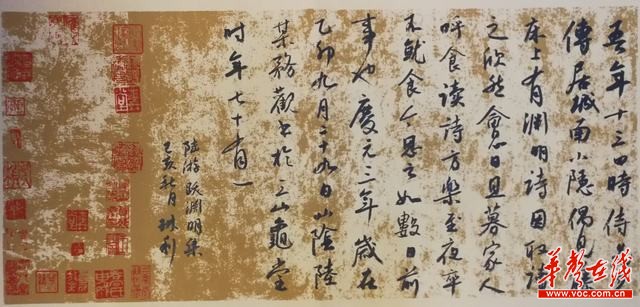 吾年十三四時侍
傅居城南小隱偶見
床上有淵明詩因取讀
之欣然會心日且暮家人
呼食读詩方樂至夜卒
不就食今思之如數日前
事也慶元三年歲在
乙卯九月二十九日山陰陸
某務觀書於三山龜堂
时年七十有一
陸游跋淵明集
己亥秋月
華聲在线
www.voc.com.cn